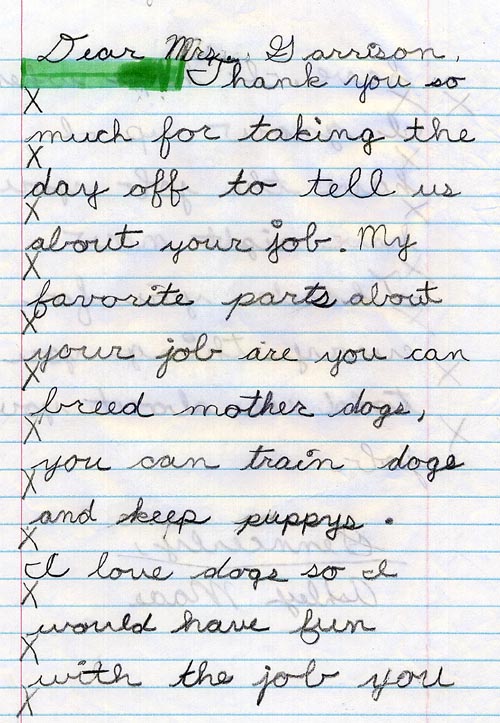 Dear Mrs. Garrison,
Thank you so
X
much for taking the
X
day off to tell us
X
about your job. My
X
favorite parts about
X
your job are you can
X
breed mother dogs,
X
you can train dogs
X
and keep puppys.
X
I love dogs so I
X
would have fun
X
with the job you
X